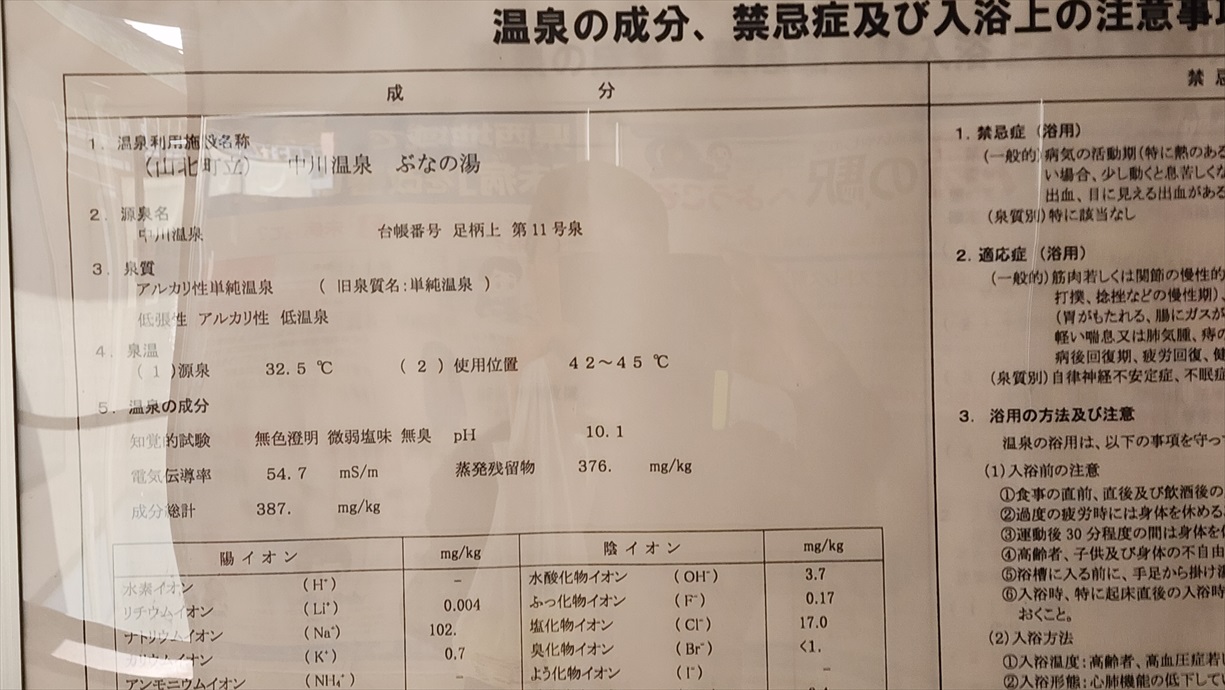 温泉の成分、禁忌症及び入浴上の注意事
成 分
1. 温泉利用施設名称
(山北町立) 中川温泉 ぶなの湯
2. 源泉名
中川温泉 台帳番号 足柄上 第11号泉
3. 泉質
アルカリ性単純温泉 ( 旧泉質名:単純温泉 )
低張性 アルカリ性 低温泉
4. 泉温
(1)源泉 32.5 ℃ (2)使用位置 42～45 ℃
5. 温泉の成分
知覚的試験 無色澄明 微弱塩味 無臭 pH 10.1
電気伝導率 54.7 mS/m 蒸発残留物 376. mg/kg
成分総計 387. mg/kg
陽イオン mg/kg 陰イオン mg/kg
水素イオン (H⁺) － 水酸化物イオン (OH⁻) 3.7
リチウムイオン (Li⁺) 0.004 ふっ化物イオン (F⁻) 0.17
ナトリウムイオン (Na⁺) 102. 塩化物イオン (Cl⁻) 17.0
カリウムイオン (K⁺) 0.7 臭化物イオン (Br⁻) <1.
アンモニウムイオン (NH₄⁺) － よう化物イオン (I⁻) －
禁忌
1. 禁忌症 (浴用)
(一般的) 病気の活動期(特に熱のある
い場合、少し動くと息苦しくな
出血、目に見える出血がある
(泉質別) 特に該当なし
2. 適応症 (浴用)
(一般的) 筋肉若しくは関節の慢性的
打撲、捻挫などの慢性期)、
(胃がもたれる、腸にガスが
軽い喘息又は肺気腫、痔の
病後回復期、疲労回復、健
(泉質別) 自律神経不安定症、不眠症
3. 浴用の方法及び注意
温泉の浴用は、以下の事項を守っ
(1)入浴前の注意
①食事の直前、直後及び飲酒後の
②過度の疲労時には身体を休める。
③運動後30分程度の間は身体を
④高齢者、子供及び身体の不自由
⑤浴槽に入る前に、手足から掛け湯
⑥入浴時、特に起床直後の入浴時
おくこと。
(2)入浴方法
①入浴温度:高齢者、高血圧症若
②入浴形態:心肺機能の低下して